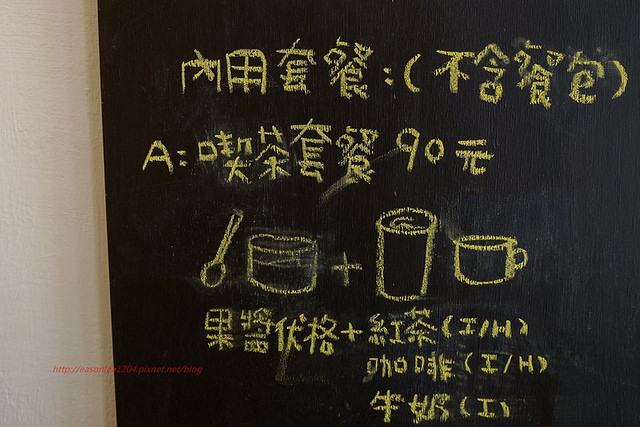 內用套餐:(不含餐包)
A:喫茶套餐 90元
果醬优格+紅茶(I/H)
咖啡(I/H)
牛奶(I)
http://easonlee1204.pixnet.net/blog